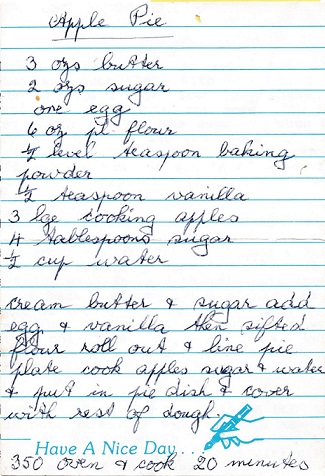 Apple Pie
3 ozs butter
2 ozs sugar
one egg
6 oz pl. flour
½ level teaspoon baking
powder
½ teaspoon vanilla
3 lge cooking apples
4 tablespoons sugar
½ cup water
cream butter & sugar add
egg & vanilla then sifted
flour roll out & line pie
plate cook apples sugar & water
& put in pie dish & cover
with rest of dough.
Have A Nice Day...
350 oven & cook 20 minutes